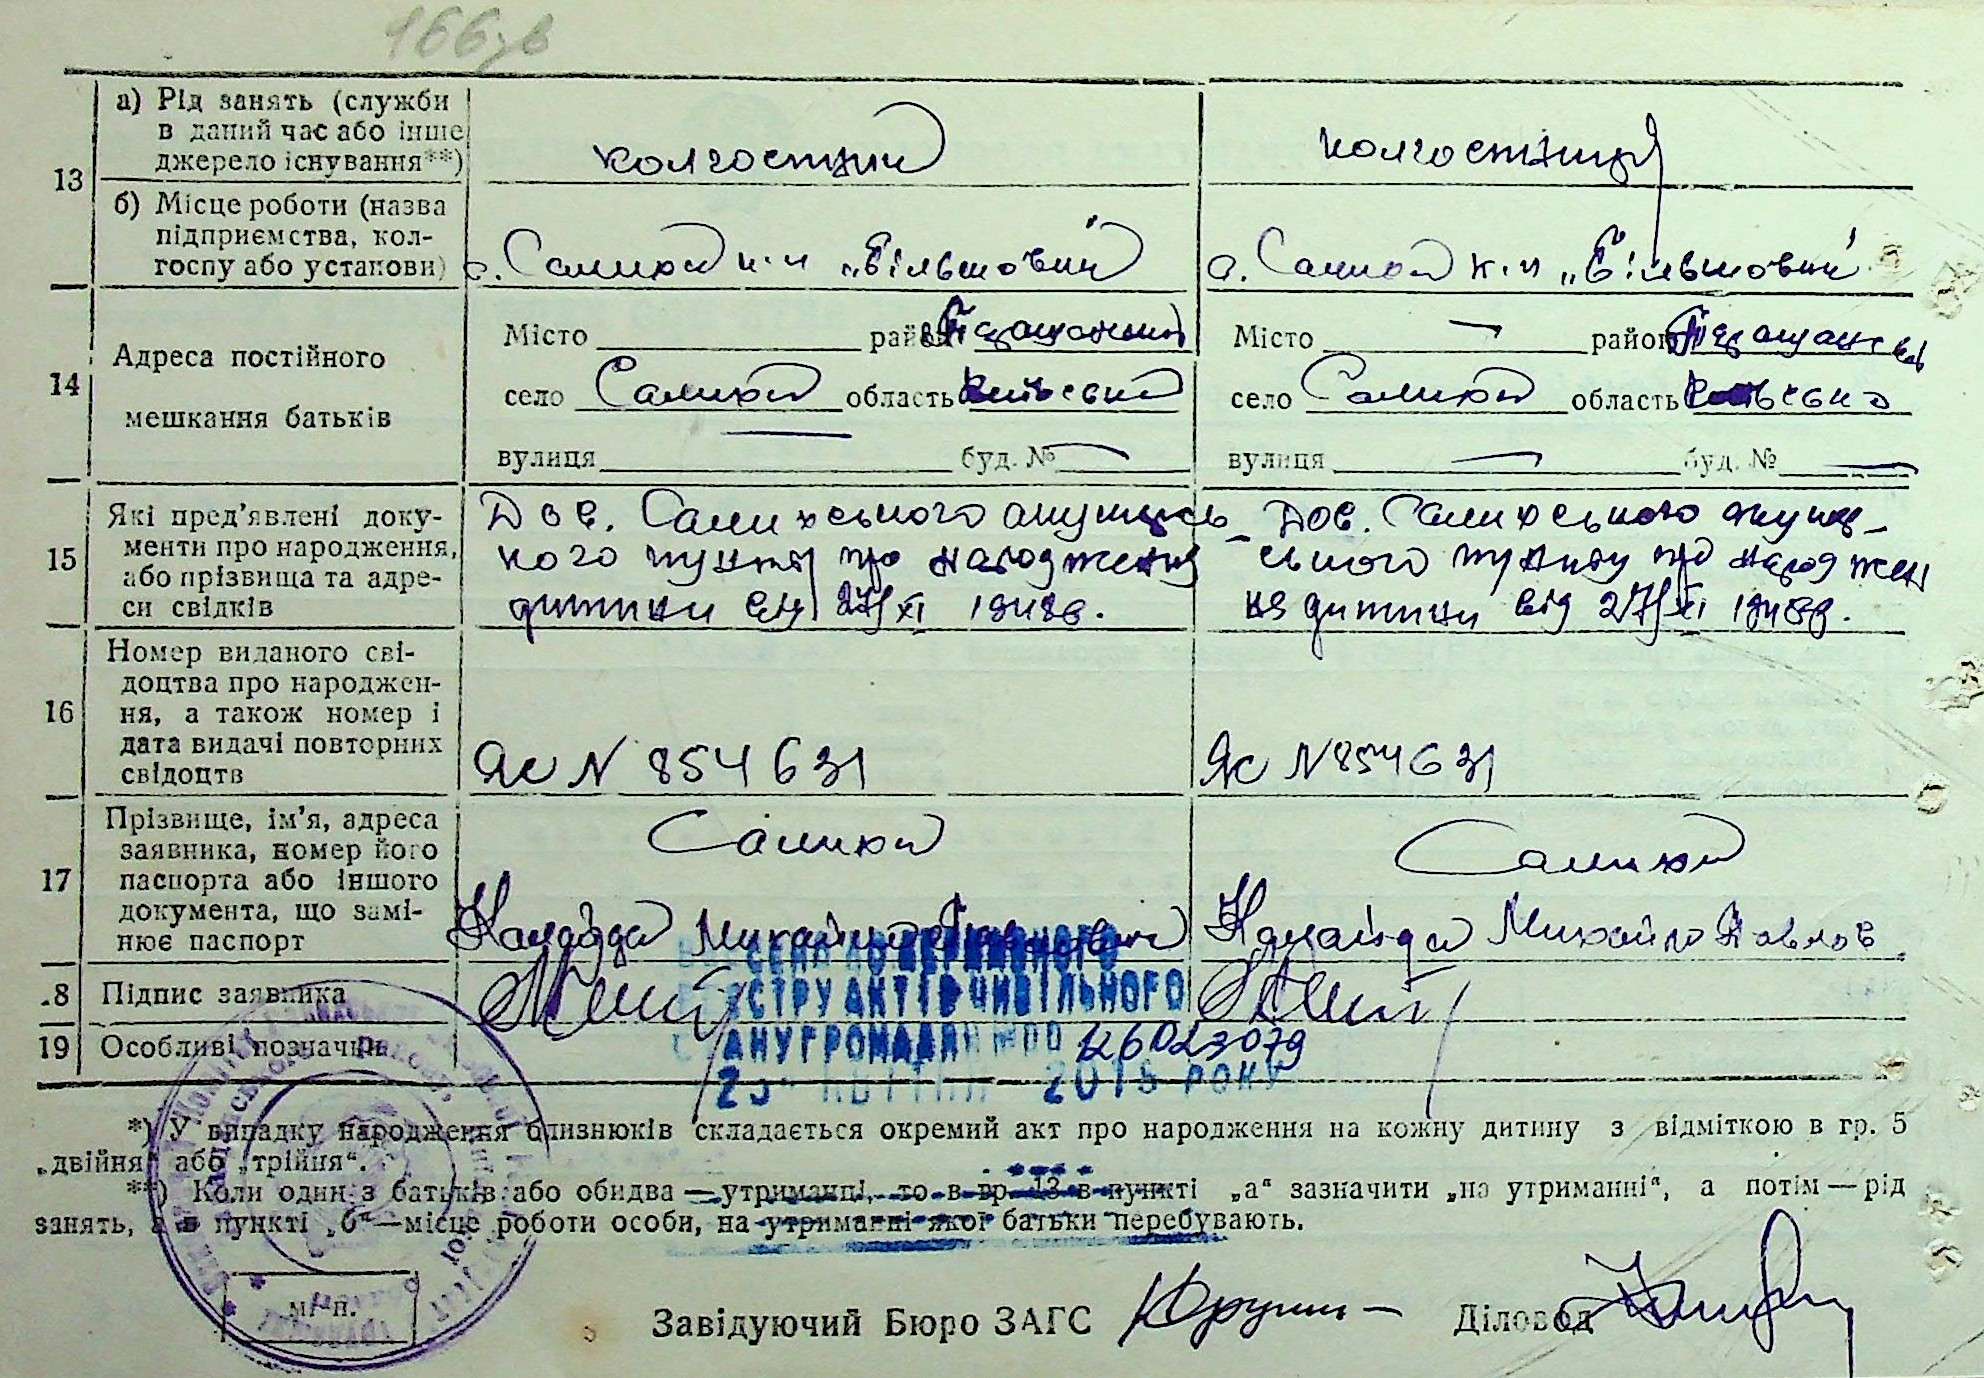 166зв
13
а) Рід занять (служби
в даний час або інше
джерело існування**)
колгоспник
колгоспниця
б) Місце роботи (назва
підприємства, кол-
госпу або установи)
с. к-п „Більшовик"
с. к-п „Більшовик"
14
Адреса постійного
мешкання батьків
Місто район
село область Київська
вулиця буд. №
Місто — район
село область
вулиця — буд. № —
15
Які пред'явлені доку-
менти про народження,
або прізвища та адре-
си свідків
Дов. акушерсь-
кого пункту про народження
дитини від 27/XI 1948в.
Дов. акуше-
ського пункту про народжен
ня дитини від 27/XI 1948в.
16
Номер виданого сві-
доцтва про народжен-
ня, а також номер і
дата видачі повторних
свідоцтв
ЯС N 854631
ЯС N 854631
17
Прізвище, ім'я, адреса
заявника, номер його
паспорта або іншого
документа, що замі-
нює паспорт
Михайло Павлович
Михайло Павлов
18 Підпис заявника
19 Особливі позначки
ВНЕСЕНО ДО ДЕРЖАВНОГО
РЕЄСТРУ АКТІВ ЦИВІЛЬНОГО
СТАНУ ГРОМАДЯН ПІД № 126023079
КВІТНЯ 2015 РОКУ
*) У випадку народження близнюків складається окремий акт про народження на кожну дитину з відміткою в гр. 5
„двійня" або „трійня".
**) Коли один з батьків або обидва — утриманці, то в гр. 13 в пункті „а" зазначити „на утриманні", а потім — рід
занять, а в пункті „б" — місце роботи особи, на утриманні якої батьки перебувають.
м. п.
Завідуючий Бюро ЗАГС
Діловод